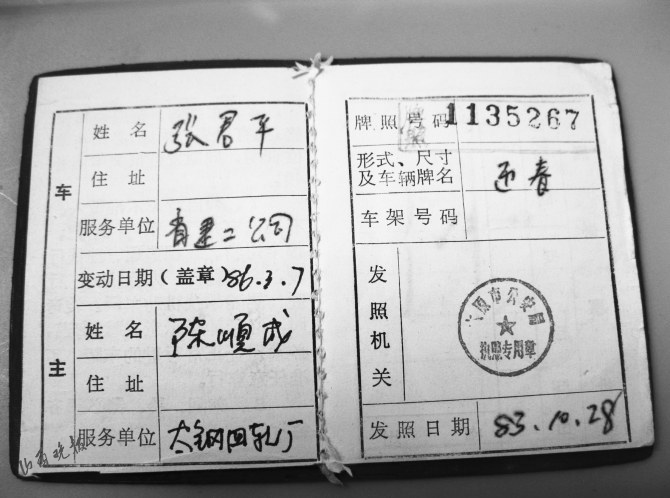 车主
姓名 张君平
住址
服务单位 省建二公司
变动日期(盖章) 86.3.7
姓名 陈顺成
住址
服务单位 太钢四轧厂
山西晚报
牌照号码 1135267
形式、尺寸
及车辆牌名 迎春
车架号码
发照机关
太原市公安局
执照专用章
发照日期 83.10.28